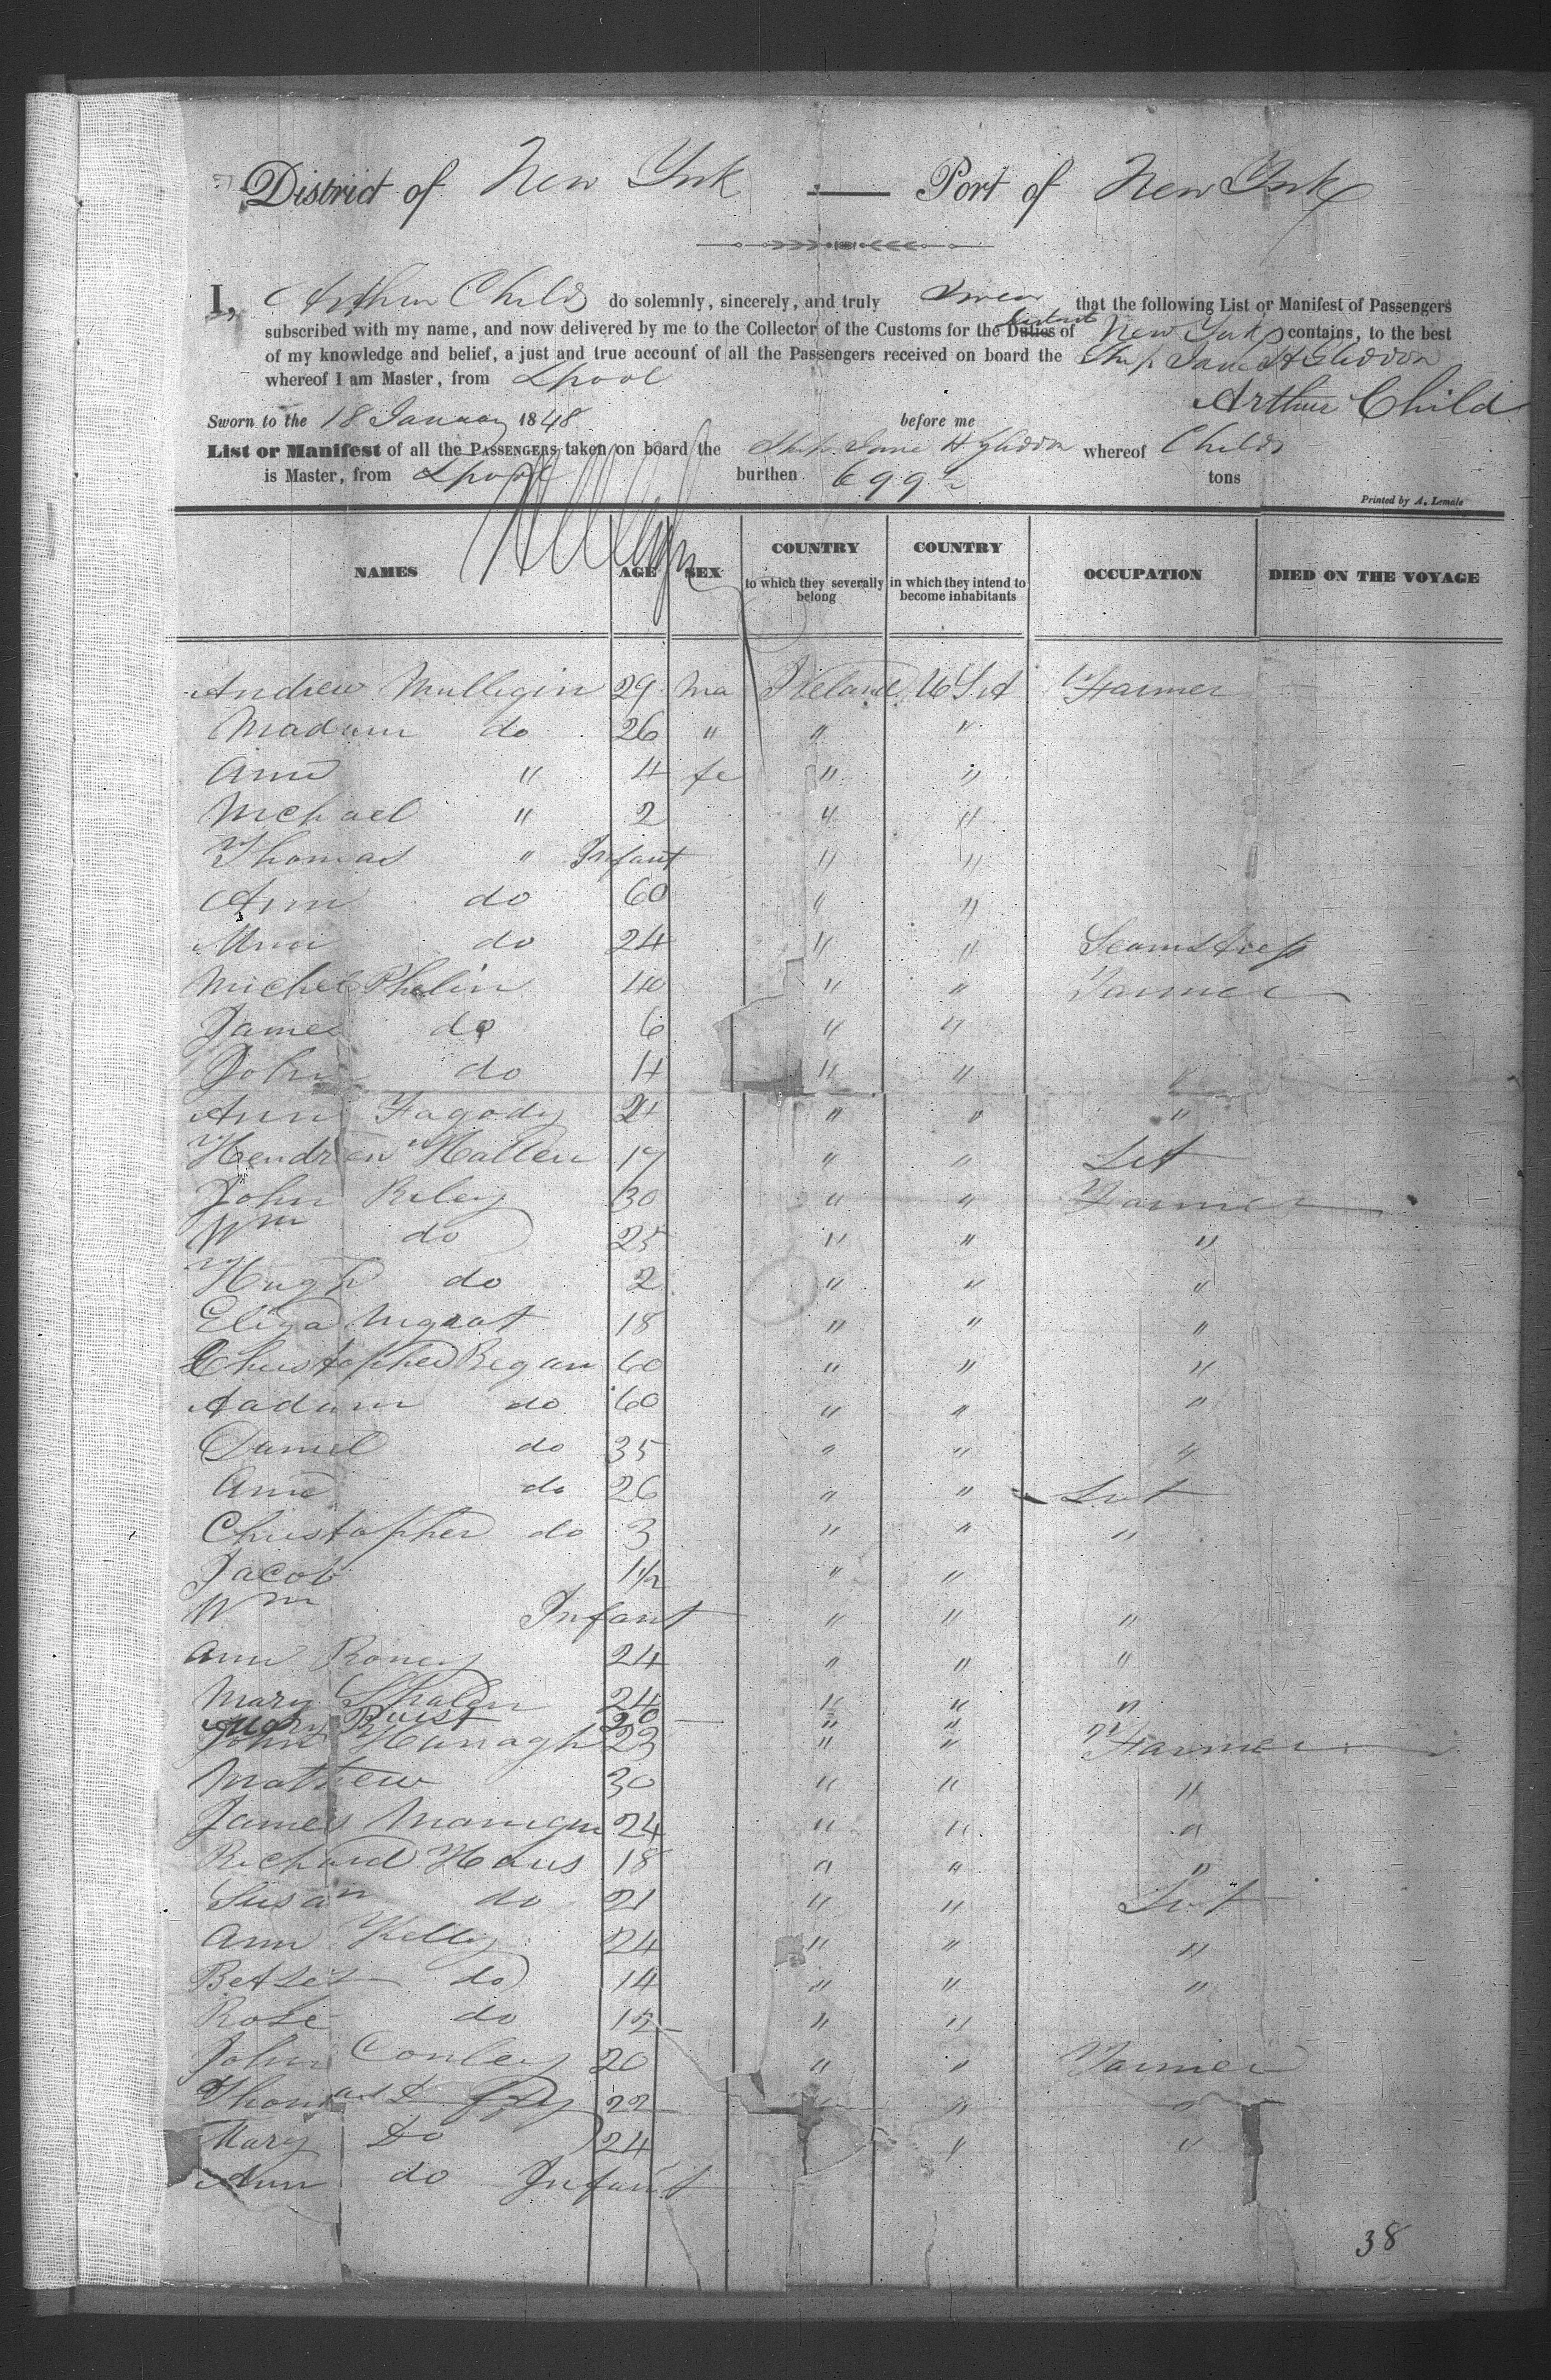 District of New York — Port of New York
I, Arthur Childs do solemnly, sincerely, and truly Swear that the following List or Manifest of Passengers
subscribed with my name, and now delivered by me to the Collector of the Customs for the Duties District of New York contains, to the best
of my knowledge and belief, a just and true account of all the Passengers received on board the Ship Jane H Gliddon
whereof I am Master, from Lpool
Arthur Child
Sworn to the 18 January 1848 before me
List or Manifest of all the Passengers taken on board the Ship Jane H Gliddon whereof Childs
is Master, from Lpool burthen 699 tons
Printed by A. Lemale
NAMES AGE SEX COUNTRY to which they severally belong COUNTRY in which they intend to become inhabitants OCCUPATION DIED ON THE VOYAGE
Andrew Mulligin 29 Ma Ireland U S A Farmer
Madam do 26 " " "
Ann " 4 fe " "
Michael " 2 " "
Thomas " Infant " "
Ann do 60 " "
do 24 " " Seamstress
Michel Phelin 40 " " Farmer
James do 6 " "
John do 4 " " "
Ann Fagody 21 " " "
Hendrien Hallen 17 " "
John Riley 30 " " Farmer
Wm do 25 " " "
Hugh do 2 " " "
Eliza Mgrat 18 " " "
Christopher Regan 60 " " "
Aadum do 60 " " "
Daniel do 35 " " "
Ann do 26 " "
Christopher do 3 " " "
Jacob 1½ " "
Wm Infant " " "
Ann Roney 24 " " "
Mary 24 " " "
Mary Buist 20 " "
John Hanagh 23 " " Farmer
Mathew 30 " " "
James 24 " " "
Richard Haus 18 " " "
Susan do 21 " "
Ann Kelly 24 " " "
Betset do 14 " " "
Rose do 12 " "
John Conley 20 " " Farmer
Thomas 22 " "
Mary Do 24 " "
Ann do Infant
38